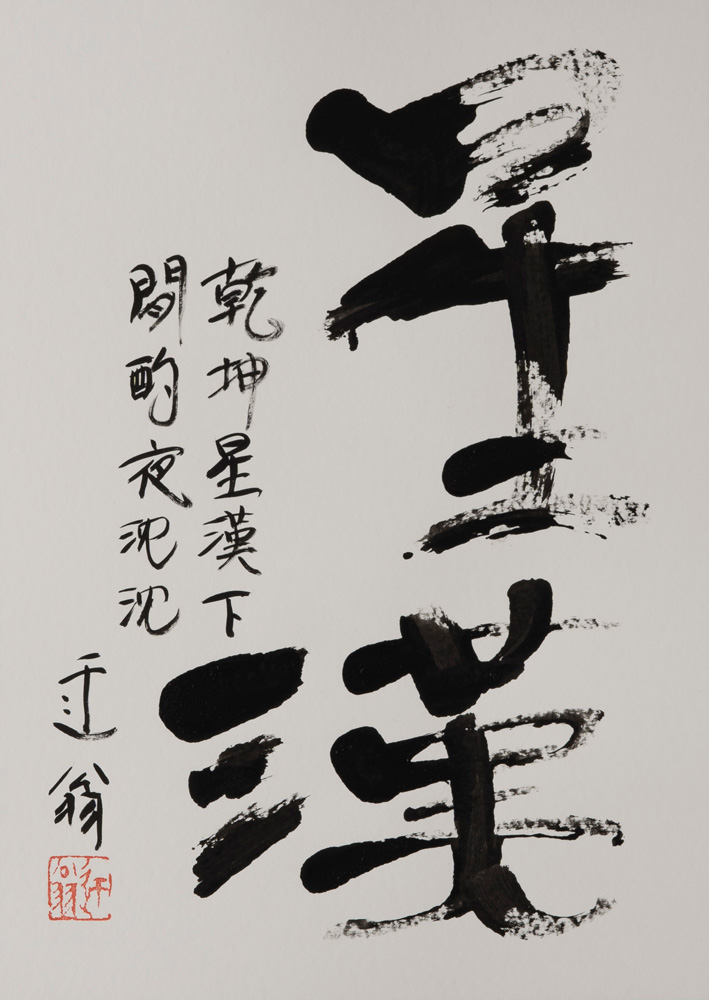 星漢
乾坤星漢下
閒酌夜沈沈
迂翁